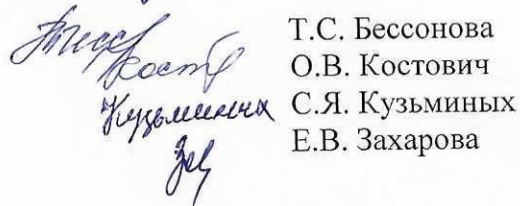 Т.С. Бессонова
Кост О.В. Костович
Кузьминых С.Я. Кузьминых
Зах Е.В. Захарова